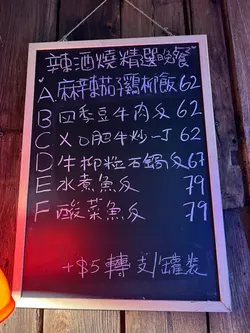 辣酒燒精選晚餐
A. 麻辣茄子鷄柳飯 62
B 四季豆牛肉反 62
C X.O肥牛炒一丁 62
D 牛柳粒石鍋反 67
E 水煮魚反 79
F 酸菜魚反 79
+$5轉支/罐裝